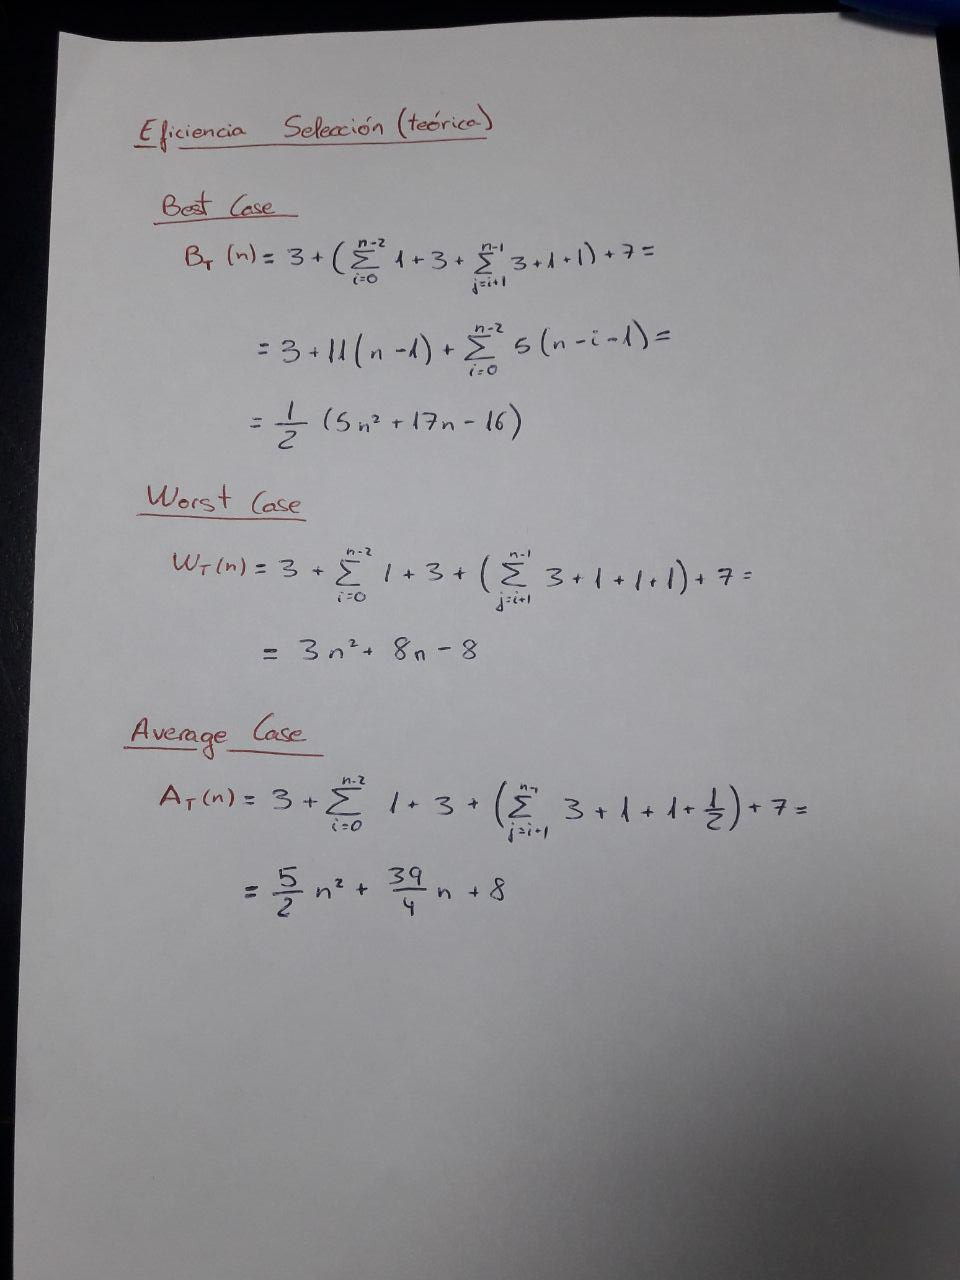 Eficiencia Selección (teórica)
Best Case
B_T (n) = 3 + (∑_{i=0}^{n-2} 1 + 3 + ∑_{j=i+1}^{n-1} 3 + 1 + 1) + 7 =
= 3 + 11(n - 1) + ∑_{i=0}^{n-2} 5 (n - i - 1) =
= 1/2 (5n² + 17n - 16)
Worst Case
W_T(n) = 3 + ∑_{i=0}^{n-2} 1 + 3 + (∑_{j=i+1}^{n-1} 3 + 1 + 1 + 1) + 7 =
= 3n² + 8n - 8
Average Case
A_T(n) = 3 + ∑_{i=0}^{n-2} 1 + 3 + (∑_{j=i+1}^{n-1} 3 + 1 + 1 + 1/2) + 7 =
= 5/2 n² + 39/4 n + 8